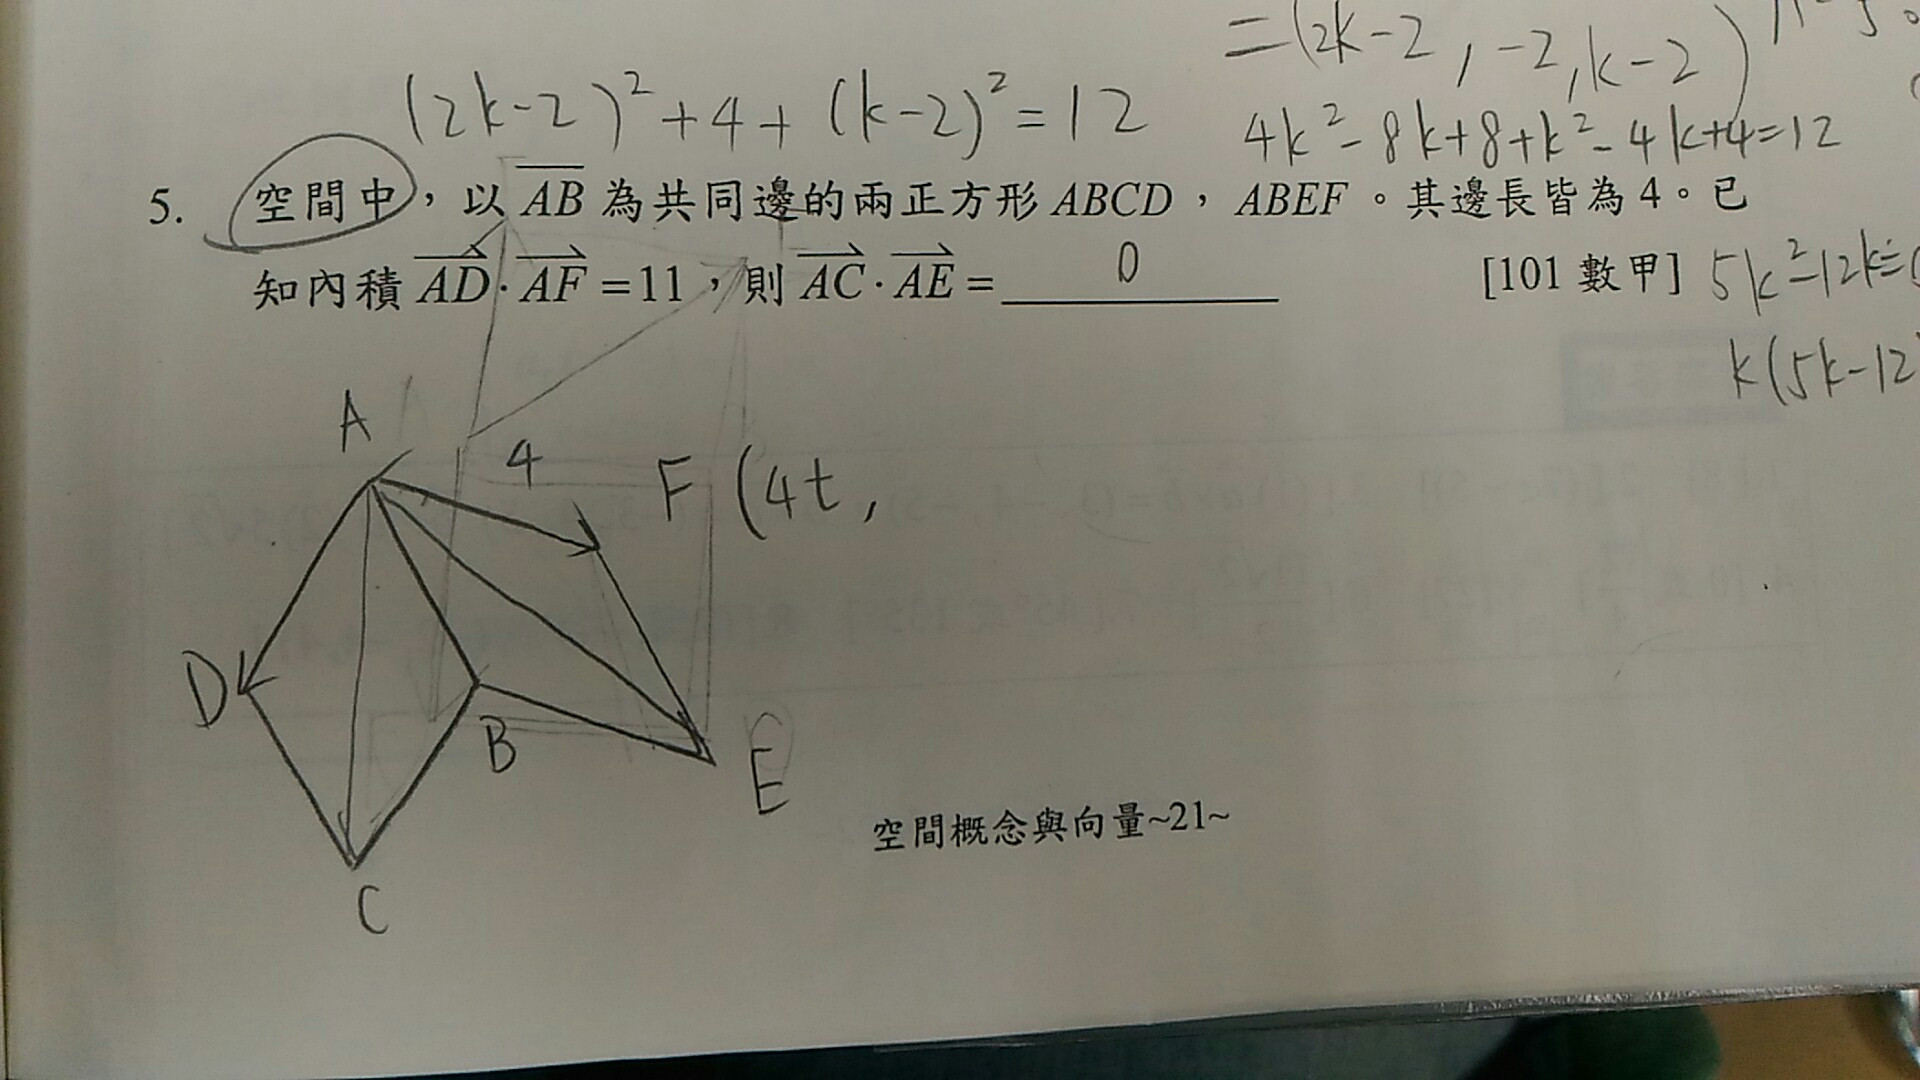 =(2k-2, -2, k-2)
(2k-2)²+4+(k-2)²=12
4k²-8k+8+k²-4k+4=12
5. 空間中，以 AB 為共同邊的兩正方形 ABCD，ABEF。其邊長皆為 4。已
知內積 AD·AF=11，則 AC·AE= 0 [101 數甲]
5k²-12k=
k(5k-12
A
4
F (4t,
D
B
E
C
空間概念與向量~21~